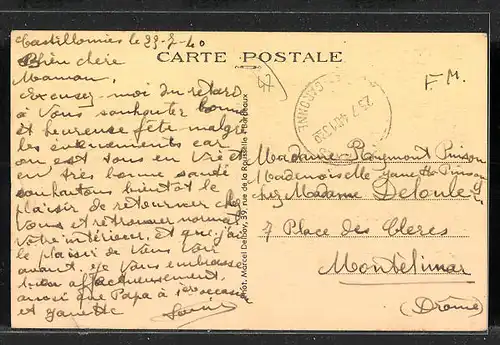 Castillonnès le 23-7-40
CARTE POSTALE
Bien chère
Maman,
Excusez-moi du retard
à vous souhaiter bonne
et heureuse fête malgré
les évènements car
on est tous en vie et
en très bonne santé
souhaitons bientôt le
plaisir de retourner chez
Vous et retrouver
votre intérieur et que j'ai
le plaisir de vous voir
avant. Je vous embrasse
bien affectueusement,
ainsi que Papa à 1ère occasion
et Ginette
Phot. Marcel Delboy, 39, rue de la Rousselle - Bordeaux
F. M.
GARONNE
23-7 40
Madame Raymont Pinson
Mademoiselle Pinson
chez Madame Deloule
7 Place des Clercs
Montélimar
(Drôme)